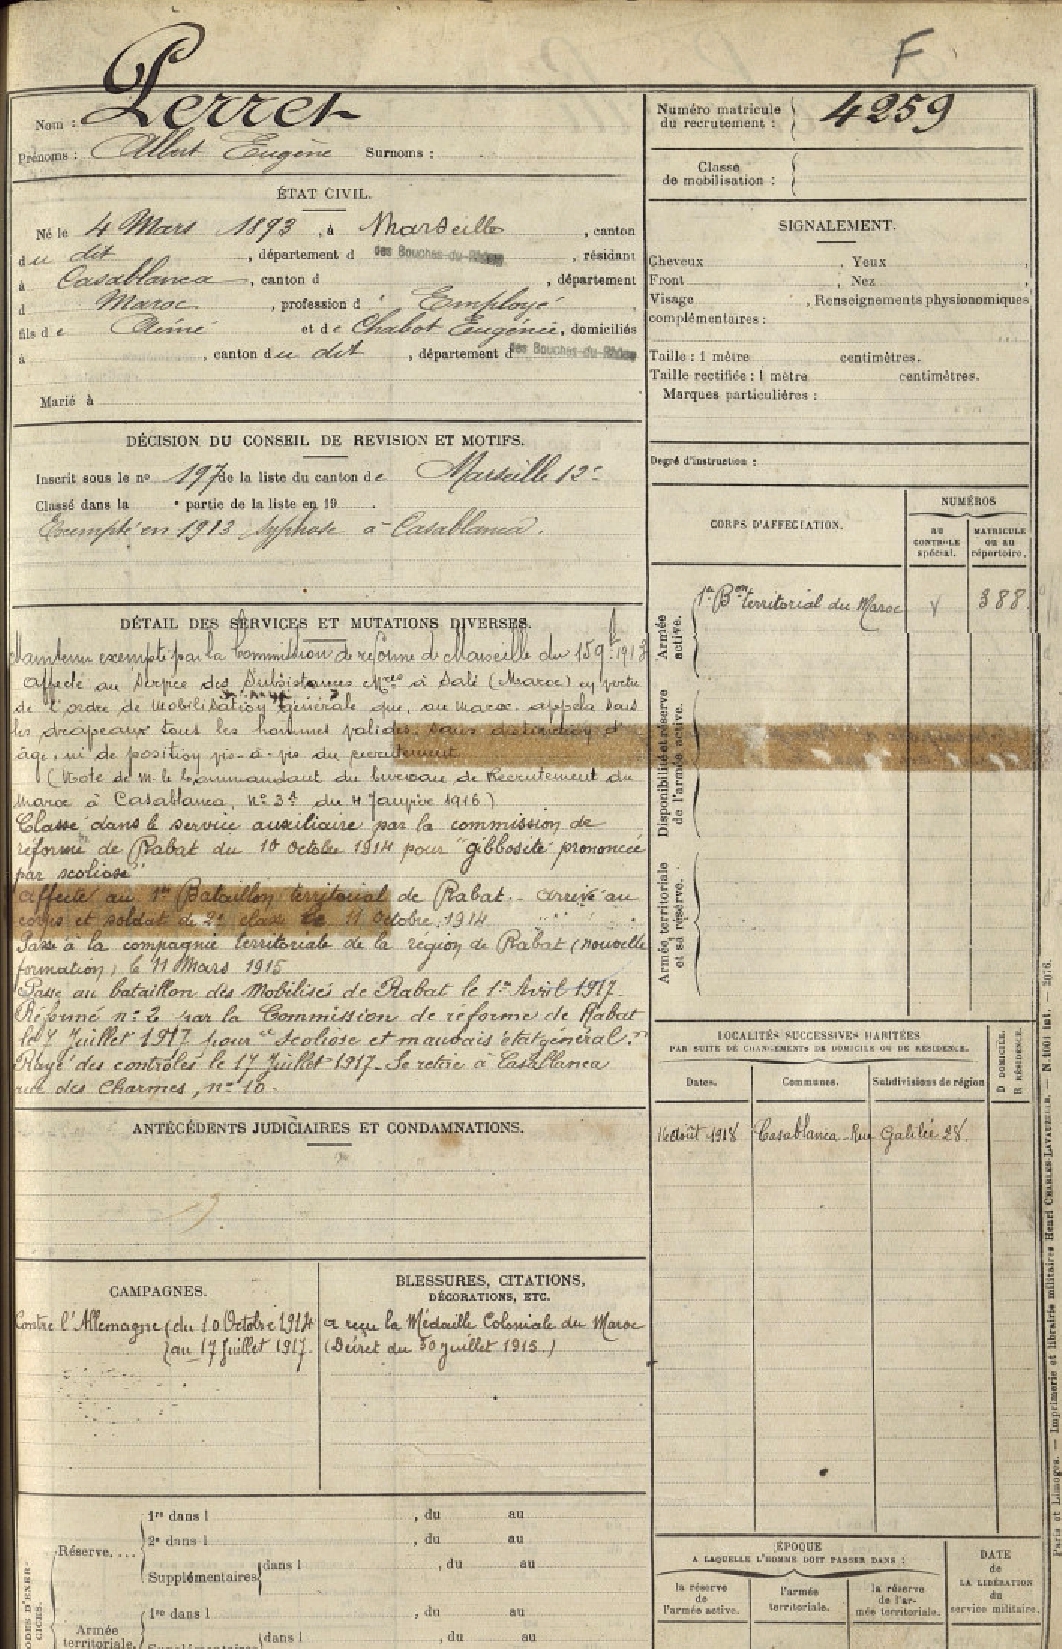 F
Nom : Perret
Prénoms : Albert Eugène Surnoms :
Numéro matricule
du recrutement : 4259
Classe
de mobilisation :
ÉTAT CIVIL.
Né le 4 Mars 1893, à Marseille, canton
du dit, département d des Bouches-du-Rhône, résidant
à Casablanca, canton d , département
d Maroc, profession d' Employé
fils de Aimé et de Chabot Eugénie, domiciliés
à , canton du dit, département d des Bouches-du-Rhône
Marié à
SIGNALEMENT.
Cheveux , Yeux ,
Front , Nez ,
Visage , Renseignements physionomiques
complémentaires :
Taille : 1 mètre centimètres.
Taille rectifiée : 1 mètre centimètres.
Marques particulières :
Degré d'instruction :
DÉCISION DU CONSEIL DE REVISION ET MOTIFS.
Inscrit sous le no 197 de la liste du canton de Marseille 12e
Classé dans la partie de la liste en 19
Exempté en 1913 à Casablanca.
CORPS D'AFFECTATION.
NUMÉROS
AU
CONTROLE
spécial.
MATRICULE
OU AU
répertoire.
Armée
active.
1er Bon territorial du Maroc 388
Disponibilité et réserve
de l'armée active.
Armée territoriale
et sa réserve.
DÉTAIL DES SERVICES ET MUTATIONS DIVERSES.
Maintenu exempté par la Commission de réforme de Marseille du 15
Affecté au Service des Subsistances Mres à Salé (Maroc) en vertu
de l'ordre de mobilisation générale que, au Maroc, appela sous
les drapeaux tous les hommes valides, sans distinction d'
âge, ni de position vis-à-vis du recrutement
(Note de M. le Commandant du bureau de Recrutement du
Maroc à Casablanca, No 3d du 4 Janvier 1916)
Classé dans le service auxiliaire par la commission de
réforme de Rabat du 10 octobre 1914 pour "gibbosité prononcée
par scoliose"
Affecté au 1er Bataillon territorial de Rabat. Arrivé au
corps et soldat de 2e classe le 11 octobre 1914
Passé à la compagnie territoriale de la région de Rabat (nouvelle
formation) le 11 Mars 1915
Passé au bataillon des Mobilisés de Rabat le 1er Avril 1917
Réformé no 2 par la Commission de réforme de Rabat
le 7 Juillet 1917 pour "scoliose et mauvais état général."
Rayé des contrôles le 17 Juillet 1917. Se retire à Casablanca
rue des Charmes, no 10.
LOCALITÉS SUCCESSIVES HABITÉES
PAR SUITE DE CHANGEMENTS DE DOMICILE OU DE RÉSIDENCE.
Dates. Communes. Subdivisions de région
D DOMICILE.
R RÉSIDENCE.
16 août 1918 Casablanca - Rue Galilée 28.
ANTÉCÉDENTS JUDICIAIRES ET CONDAMNATIONS.
CAMPAGNES.
Contre l'Allemagne (du 10 Octobre 1914
(au 17 Juillet 1917.
BLESSURES, CITATIONS,
DÉCORATIONS, ETC.
a reçu la Médaille Coloniale du Maroc
(Décret du 30 juillet 1915.)
Réserve....
1re dans l , du au
2e dans l , du au
Supplémentaires dans l , du au
Armée
territoriale.
1re dans l , du au
Supplémentaires dans l , du au
ÉPOQUE
A LAQUELLE L'HOMME DOIT PASSER DANS :
la réserve
de l'armée active.
l'armée
territoriale.
la réserve
de l'ar-
mée territoriale.
DATE
de
LA LIBÉRATION
du
service militaire.
Paris et Limoges. — Imprimerie et librairie militaires Henri CHARLES-LAVAUZELLE.